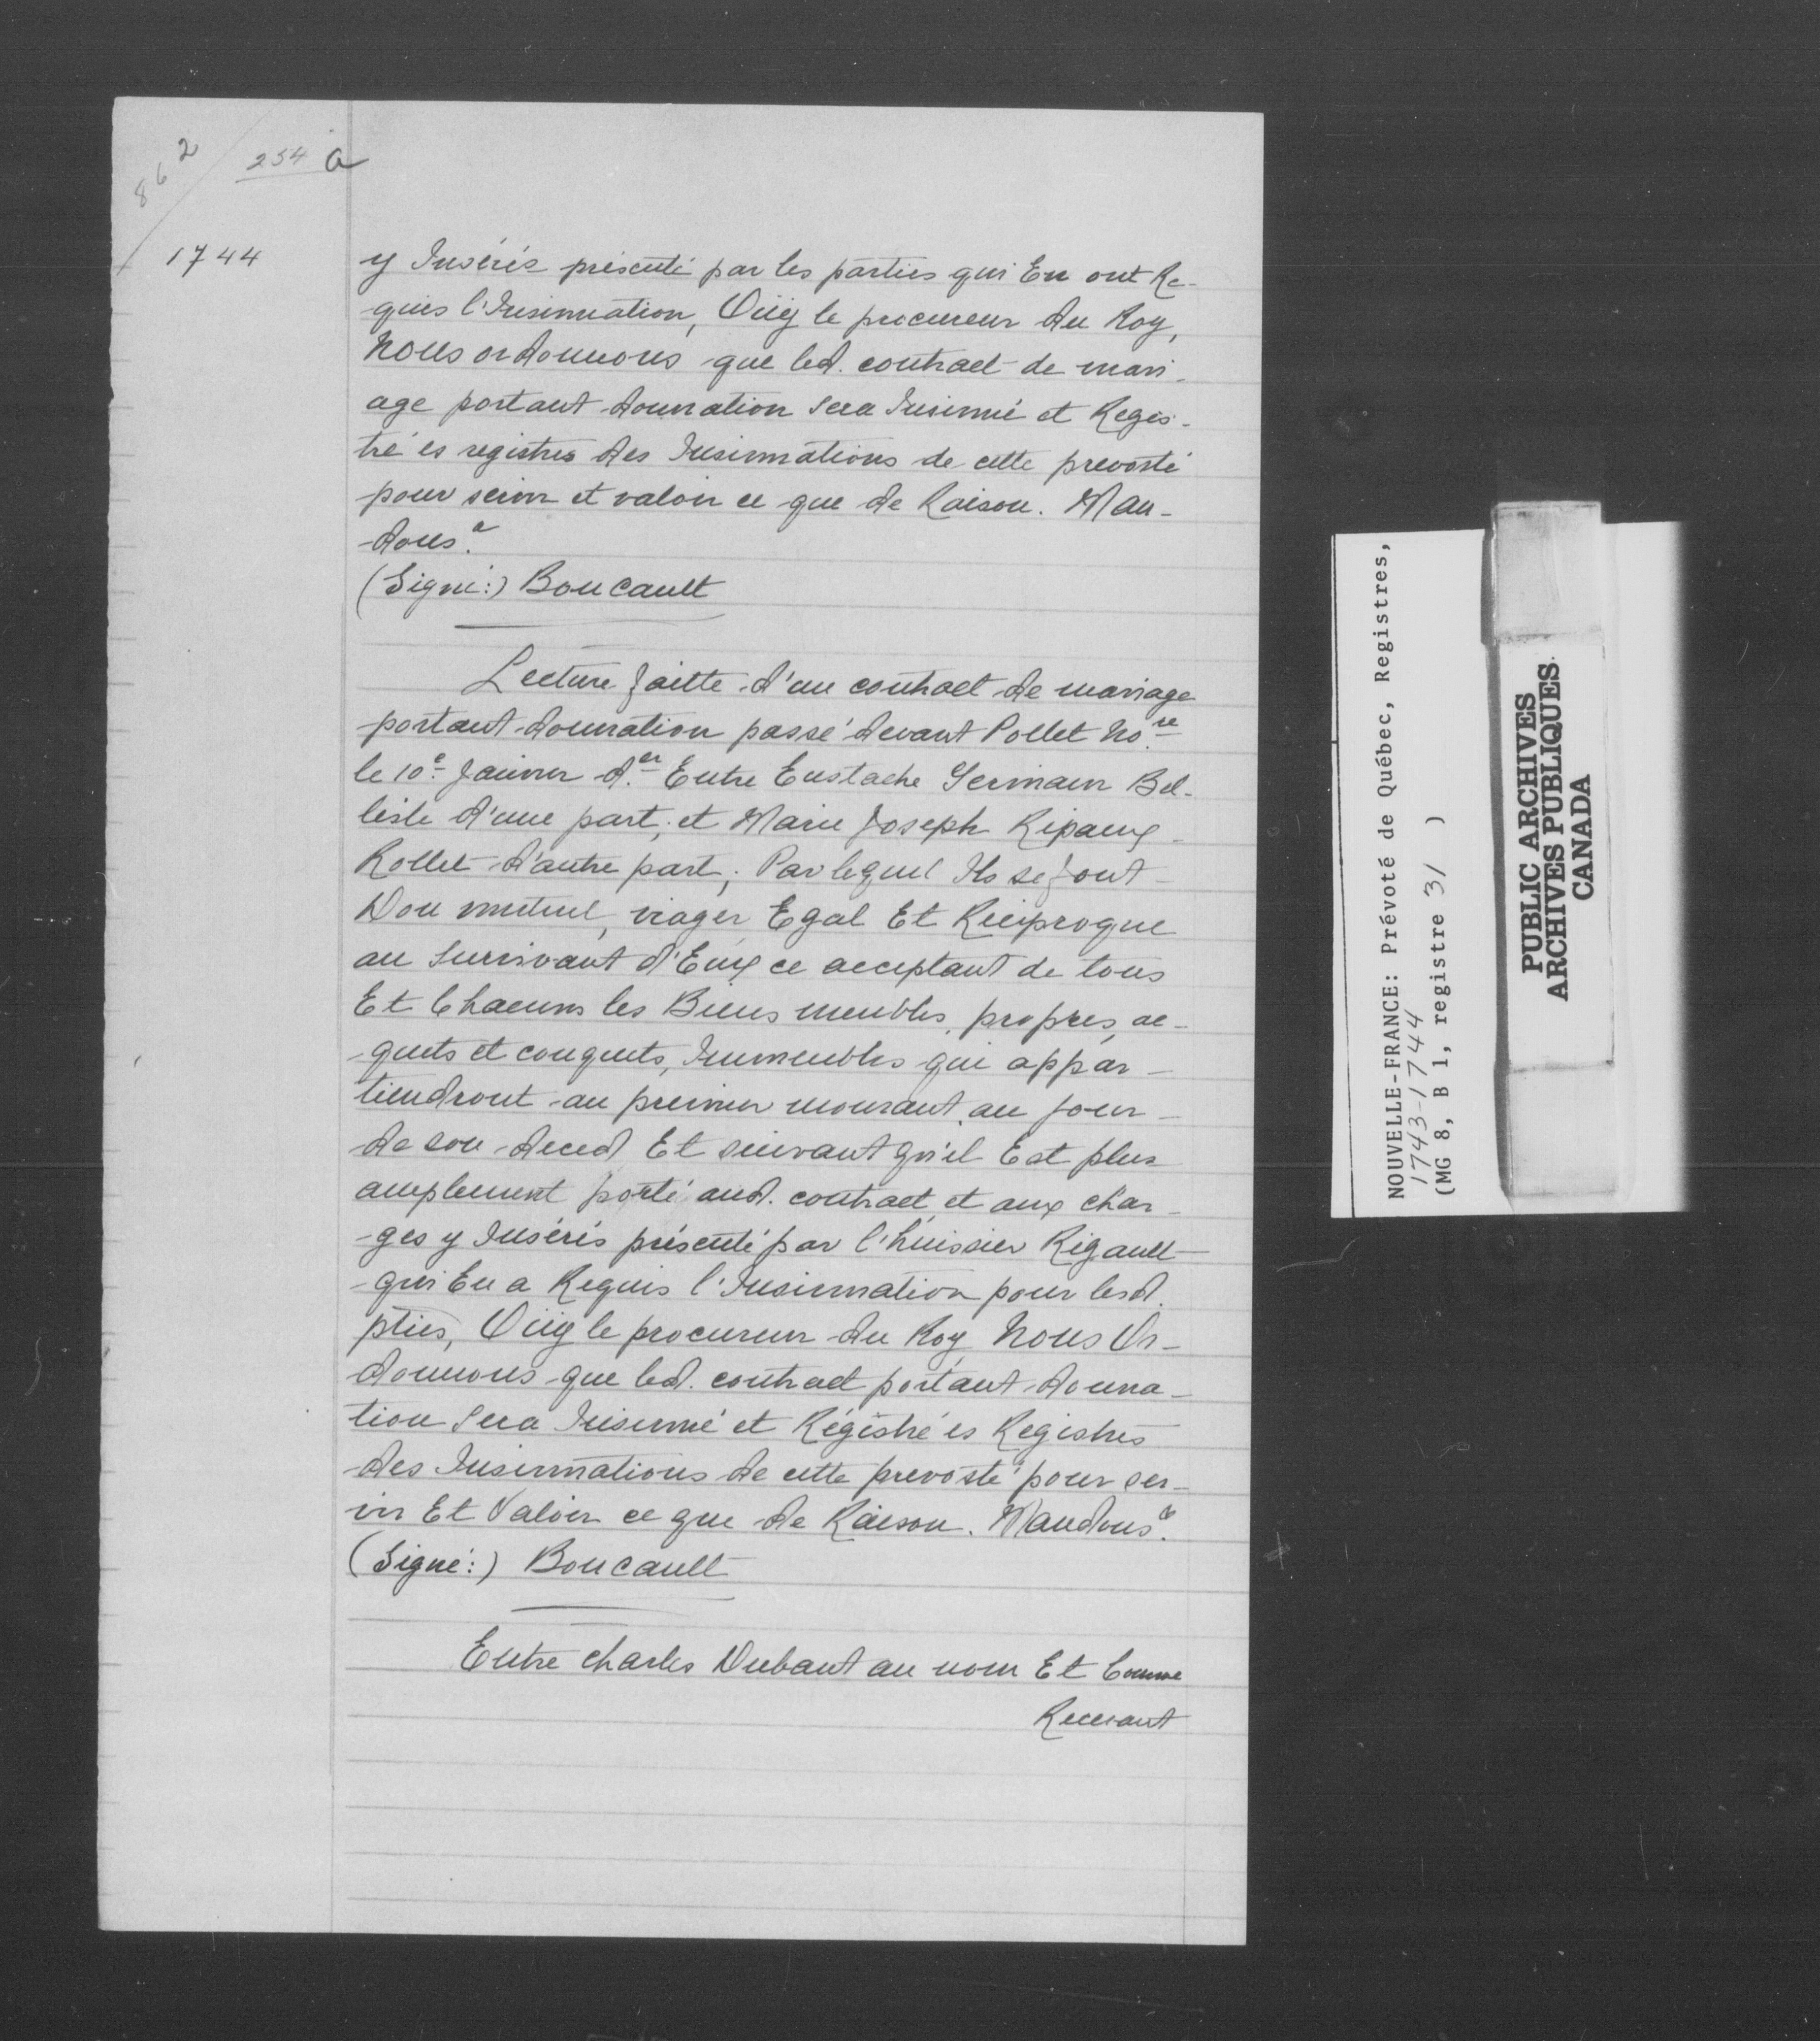 862
254 a
1744
y Insérés présenté par les parties qui En ont Re-
quis l'Insinuation, Oüy le procureur du Roy,
Nous ordonnons que led. contract de mari-
age portant donnation sera Insinué et Regis-
tré es registres des Insinuations de cette prevosté
pour servir et valoir ce que de Raison. Man-
dons.a
(Signé:) Boucault
Lecture faitte d'un contract de mariage
portant donnation passé devant Pollet No.re
le 10e Janvier d.er Entre Eustache Germain Bel-
lisle d'une part, et Marie Joseph Ripaux
Rollet d'autre part; Par lequel Ils se font
Don mutuel, viager Egal Et Reciproque
au Survivant d'Eux ce acceptant de tous
Et Chacuns les Biens meubles, propres, ac-
quets et conquets, Immeubles qui appar-
tiendront au premier mourant au jour
de son deced Et suivant qu'il Est plus
amplement porté aud. contract et aux char-
ges y Insérés présenté par l'huissier Rigault
qui En a Requis l'Insinuation pour lesd.
pties, Oüy le procureur du Roy Nous Or-
donnons que led. contract portant donna-
tion Sera Insinué et Régistré es Registres
des Insinuations de cette prevosté pour ser-
vir Et Valoir ce que de Raison. Mandons.a
(Signé:) Boucault
Entre Charles Dubaut au nom Et Comme
Recevant
NOUVELLE-FRANCE: Prévoté de Québec, Registres,
1743-1744
(MG 8, B 1, registre 31 )
PUBLIC ARCHIVES
ARCHIVES PUBLIQUES
CANADA